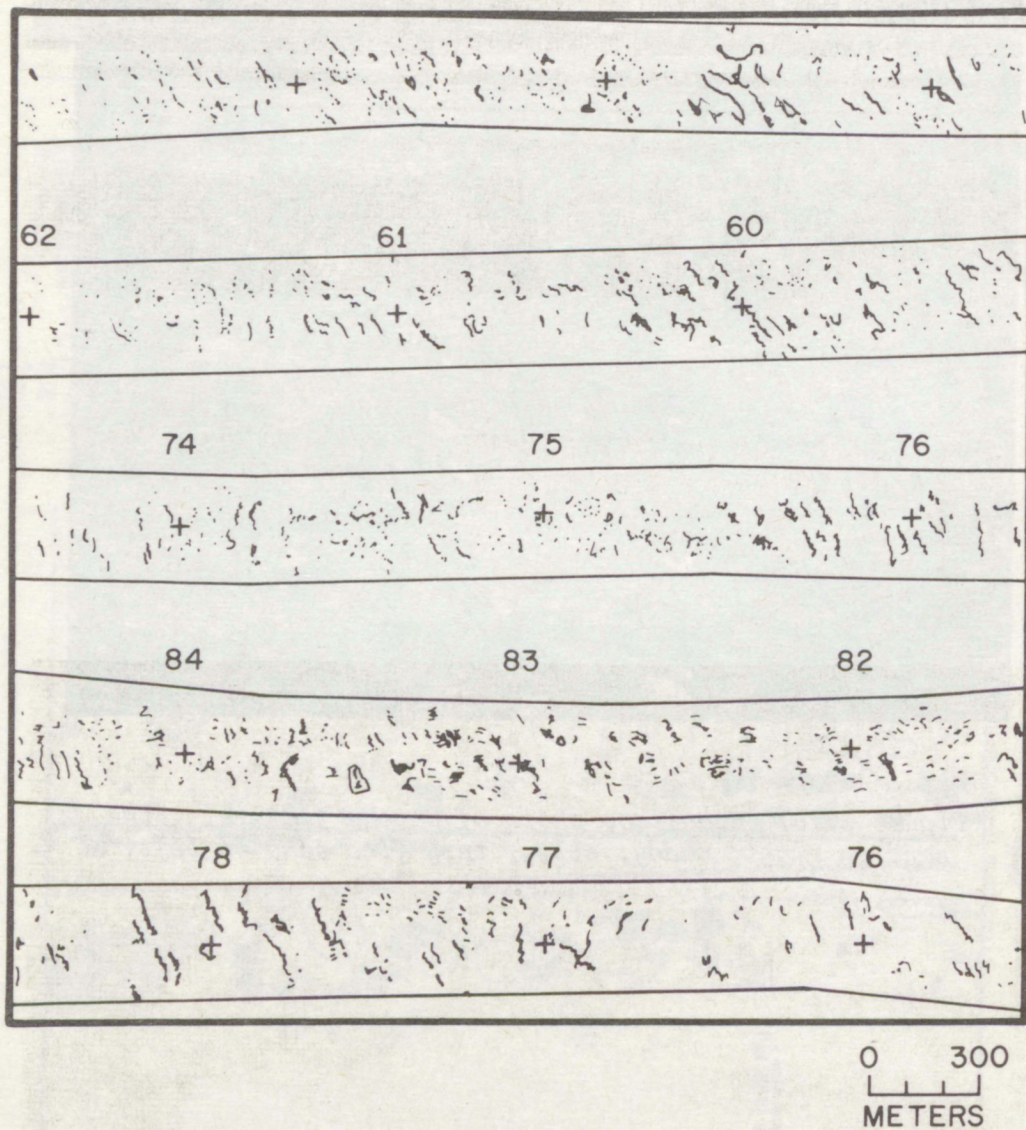 62 61 60
74 75 76
84 83 82
78 77 76
0 300
METERS